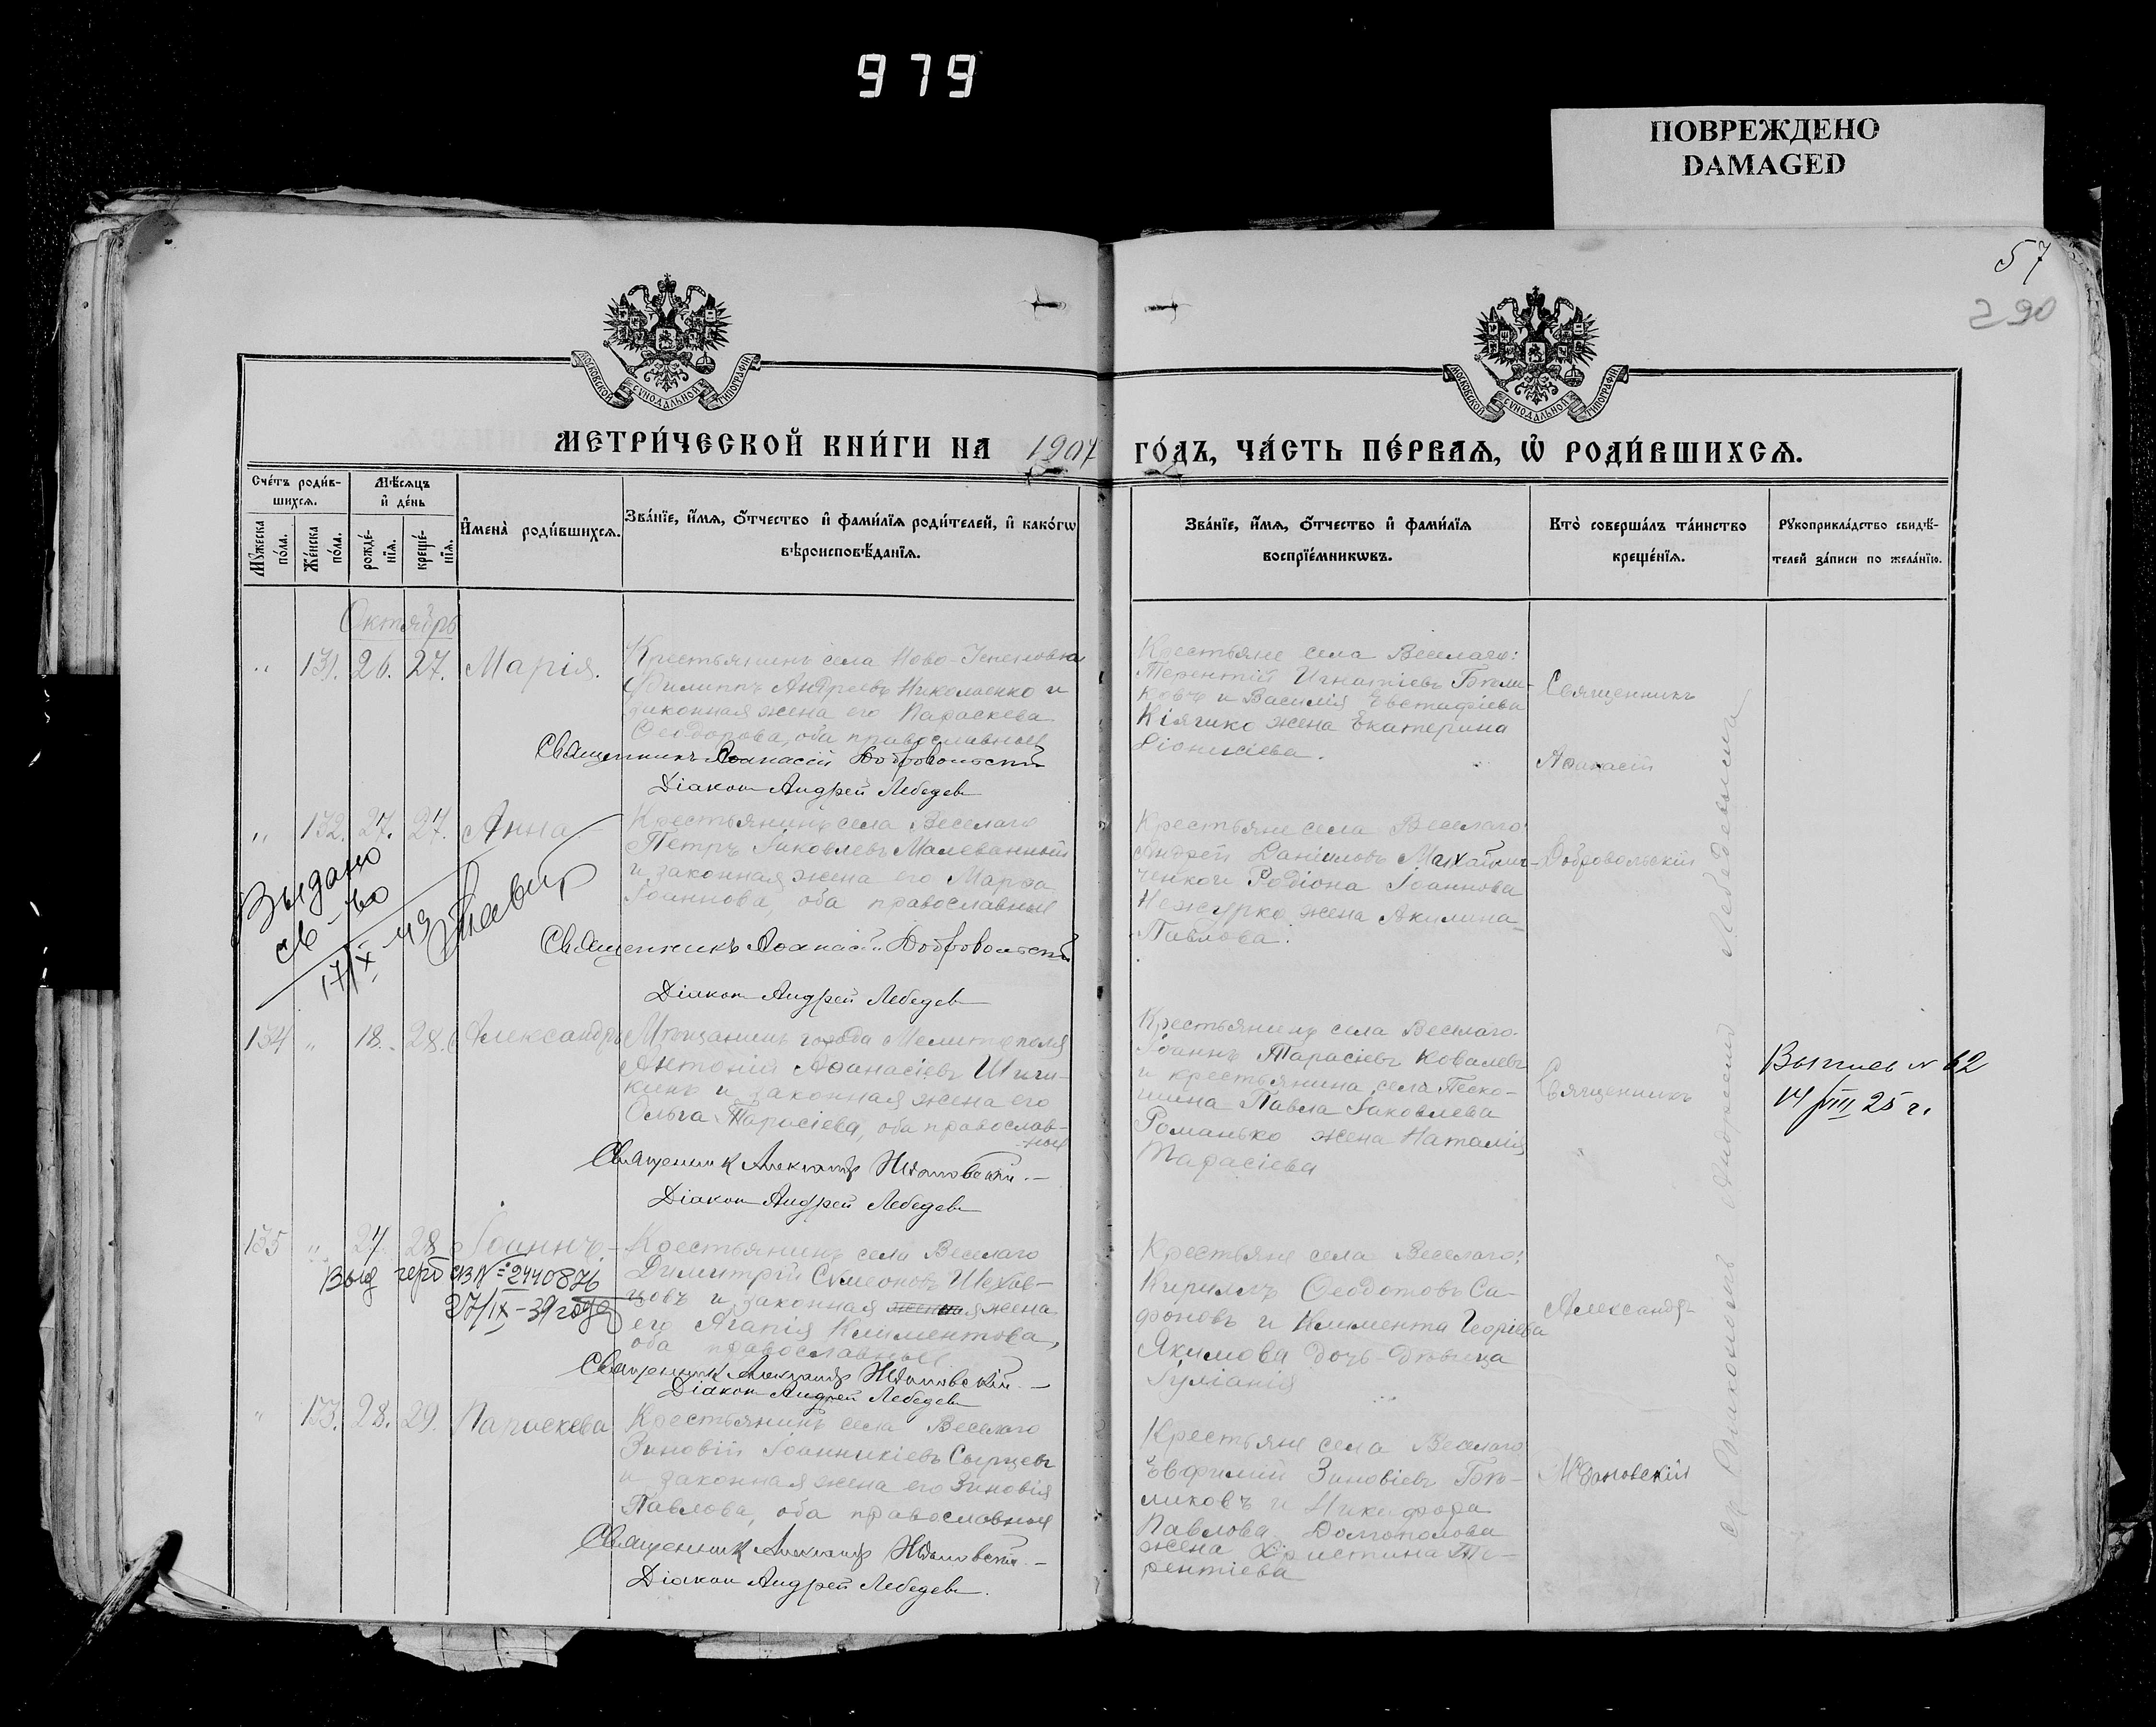 979
ПОВРЕЖДЕНО
DAMAGED
57
290
МОСКОВСКОЙ СѴНОДАЛЬНОЙ ТИПОГРАФІИ
МОСКОВСКОЙ СѴНОДАЛЬНОЙ ТИПОГРАФІИ
МЕТРИ́ЧЕСКОЙ КНИ́ГИ НА 1907 ГО́ДЪ, ЧА́СТЬ ПЕ́РВАѦ, Ѽ РОДИ́ВШИХСѦ.
Сче́тъ роди́в-
шихсѧ.
Мꙋ́жеска
по́ла.
Же́нска
по́ла.
Мѣ́сѧцъ
и҆ де́нь
рожде́-
нїѧ.
креще́-
нїѧ.
И҆мена̀ роди́вшихсѧ.
Зва́нїе, и҆́мѧ, ѻ҆́тчество и҆ фами́лїѧ роди́телей, и҆ како́гѡ
вѣроисповѣ́данїѧ.
Зва́нїе, и҆́мѧ, ѻ҆́тчество и҆ фами́лїѧ
воспрїе́мникѡвъ.
Кто̀ соверша́лъ та́инство
креще́нїѧ.
Рꙋкоприкла́дство свидѣ́-
телей за́писи по жела́нїю.
Октябрь
„ 131. 26. 27. Марія.
Крестьянинъ села Ново-
Филиппъ Андреевъ Николаенко и
законная жена его Параскева
Ѳеодорова, оба православные
Священникъ Аѳанасій Добровольскій
Діаконъ Андрей Лебедев
Крестьяне села Веселаго:
Терентій Игнатіевъ Бѣли-
ковъ и Василія Евстафіева
жена Екатерина
Діонисіева.
Священникъ
Аѳанасій
Добровольскій
„ 132. 27. 27. Анна
Крестьянинъ села Веселаго
Петръ Іаковлевъ Малеванный
и законная жена его Марѳа
Іоаннова, оба православные
Священникъ Аѳанасій Добровольскій
Діакон Андрей Лебедев
Выдано
св-во
17/IX-43
Крестьяне села Веселаго:
Андрей Даніиловъ Михайли-
ченко и Родіона Іоаннова
Нежурко жена Акилина
Павлова.
134 „ 18. 28. Александръ
Мѣщанинъ города Мелитополя
Антоній Аѳанасіевъ Шиш-
кинъ и законная жена его
Ольга Тарасіева, оба православ-
ные
Священник Александр Ждановскій.-
Діакон Андрей Лебедев
Крестьянинъ села Веселаго
Іоаннъ Тарасіевъ Ковалевъ
и крестьянина села Песко-
шина Павла Іаковлева
Романько жена Наталія
Тарасіева
Священникъ
„
Александръ
Ждановскій
Выпись № 62
14/VIII 25 г.
135 „ 27. 28 Іоаннъ
Крестьянинъ села Веселаго
Димитрій Симеоновъ Шехов-
цовъ и законная жена
его Агапія Климентова,
оба православные
Священник Александр Ждановскій.-
Діакон Андрей Лебедев
Выд герб св № 2440876
27/IX-39 года
Крестьяне села Веселаго:
Кириллъ Ѳеодотовъ Са-
фоновъ и Климента Георгіева
Якимова дочь-дѣвица
Іуліанія
„ 133. 28. 29. Параскева
Крестьянинъ села Веселаго
Зиновій Іоанникіевъ Сырцевъ
и законная жена его Зиновія
Павлова, оба православные
Священник Александр Ждановскій.-
Діакон Андрей Лебедев.
Крестьяне села Веселаго
Евфимій Зиновіевъ Бѣ-
ликовъ и Никифора
Павлова Долгополова
жена Христина Те-
рентіева
съ діакономъ Андреемъ Лебедевымъ